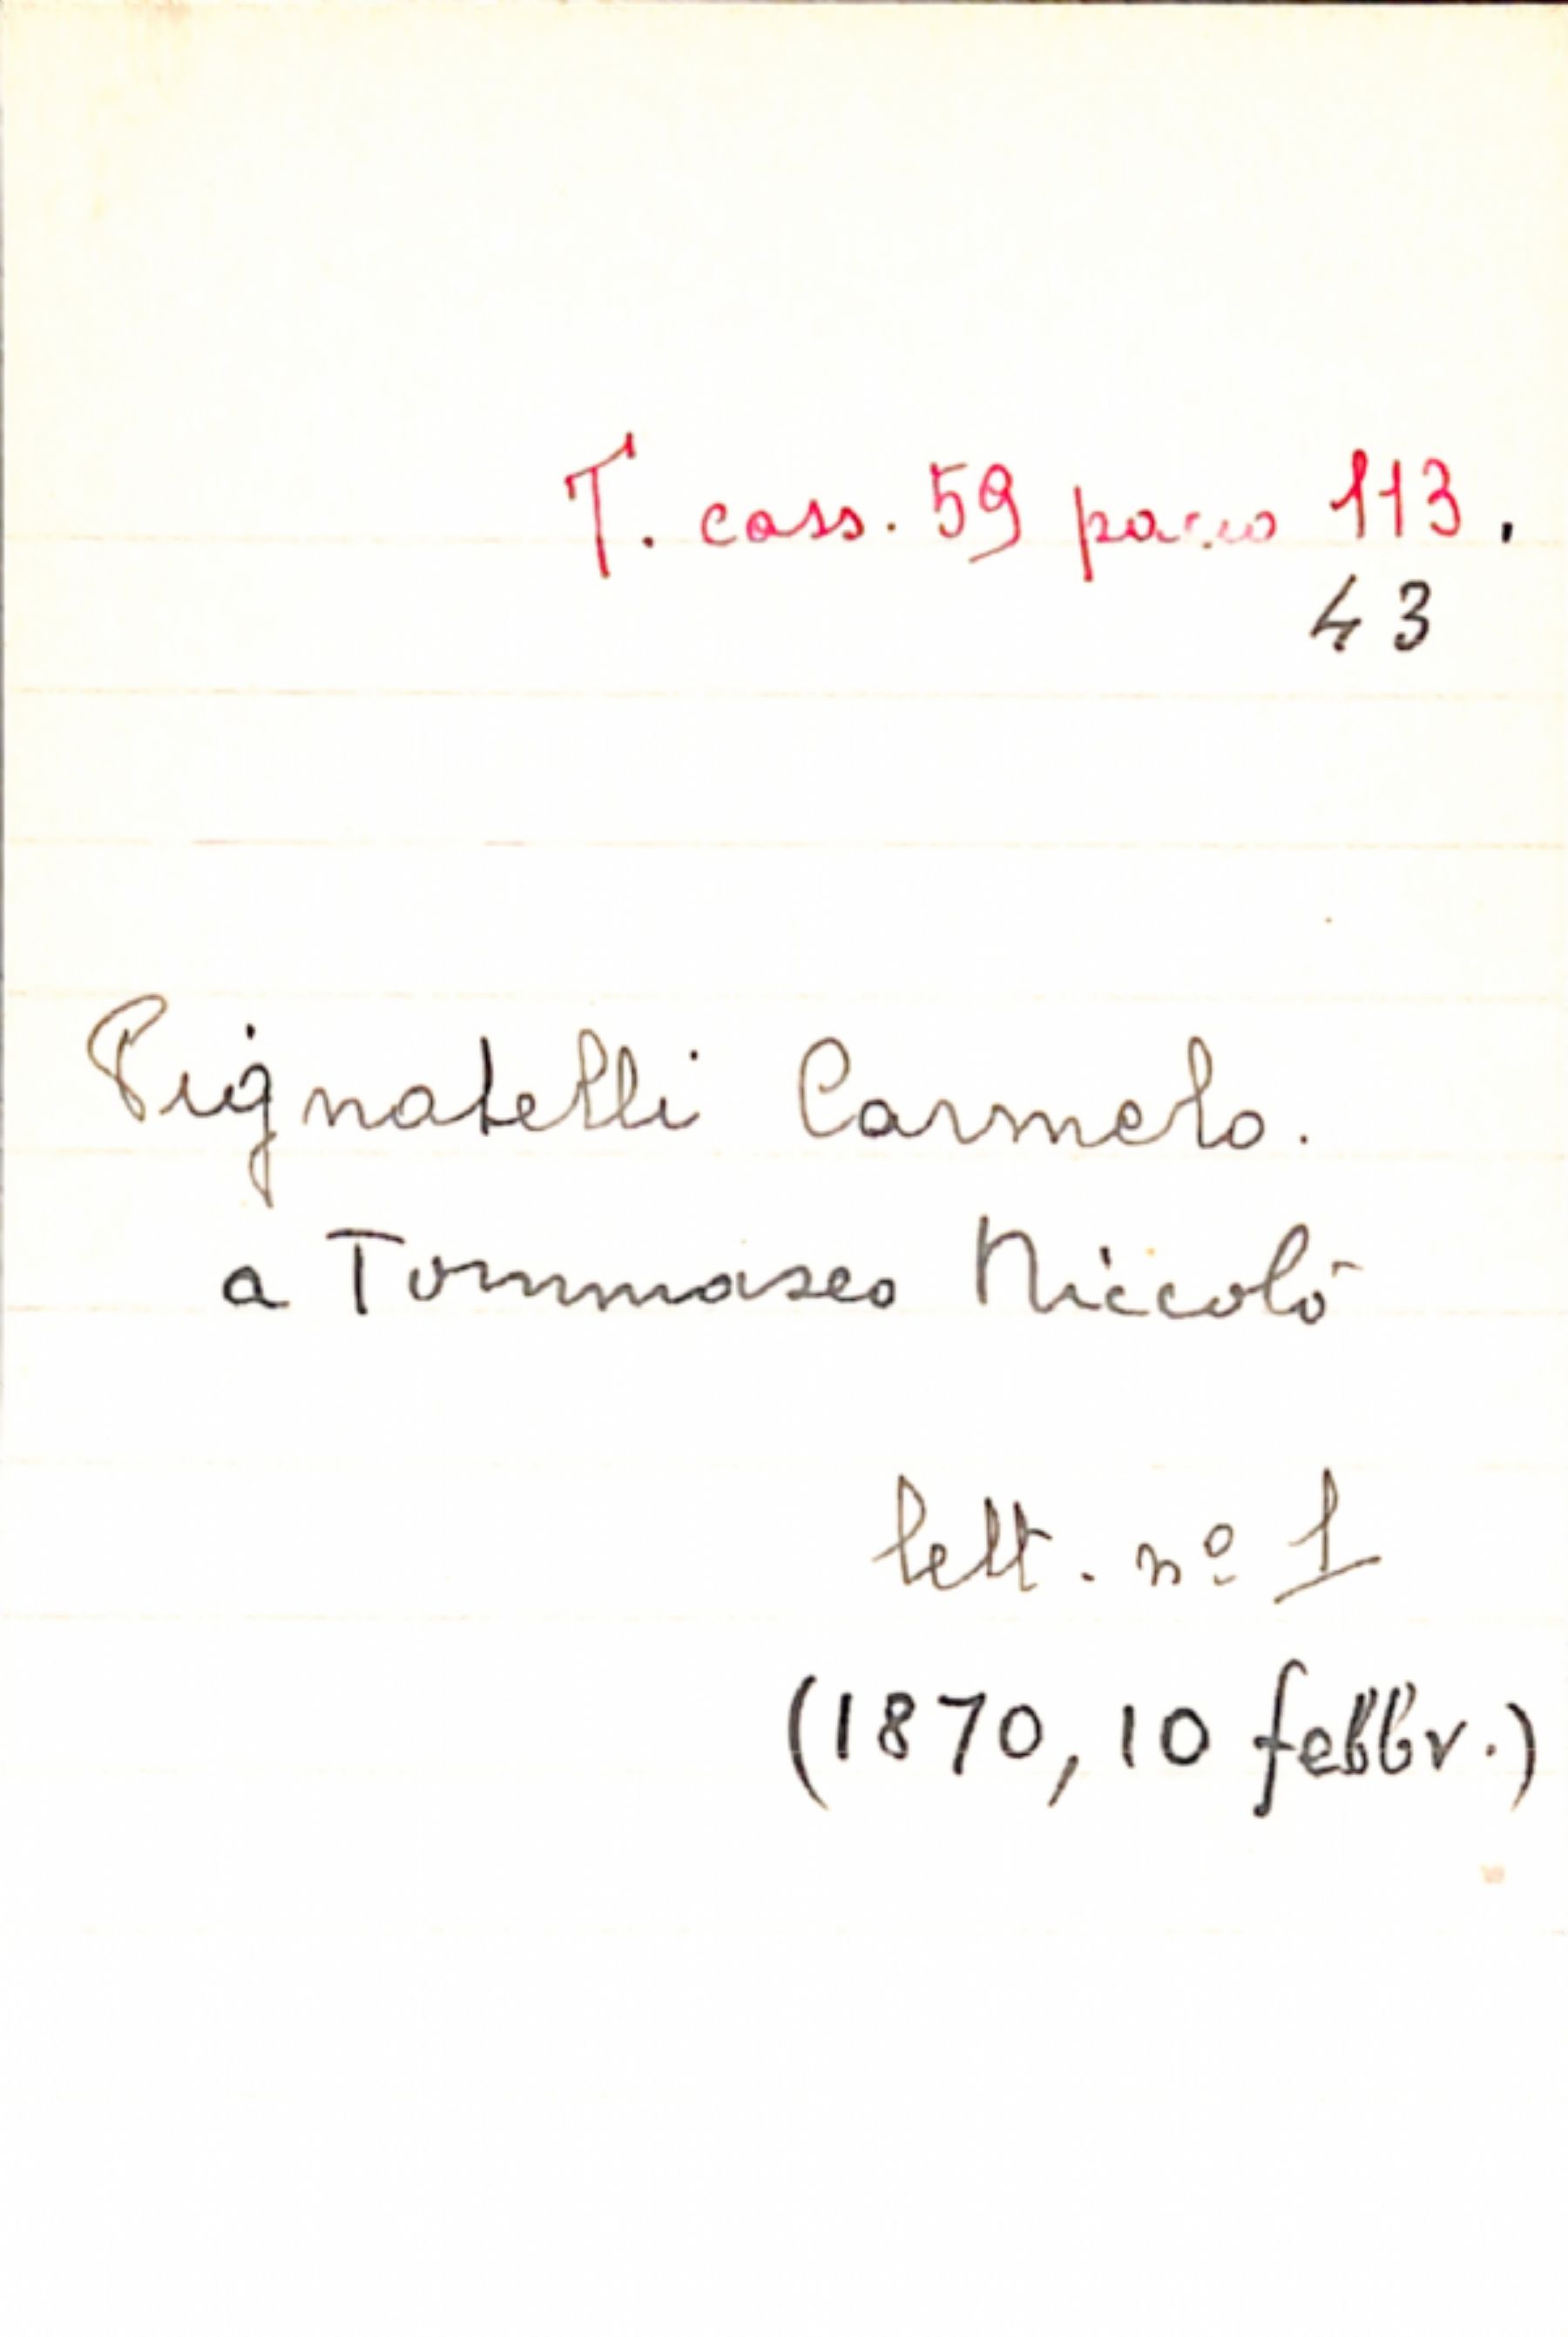 T. cass. 59 pacco 113.
43
Pignatelli Carmelo.
a Tommaseo Niccolò
lett. nº 1
(1870, 10 febbr.)